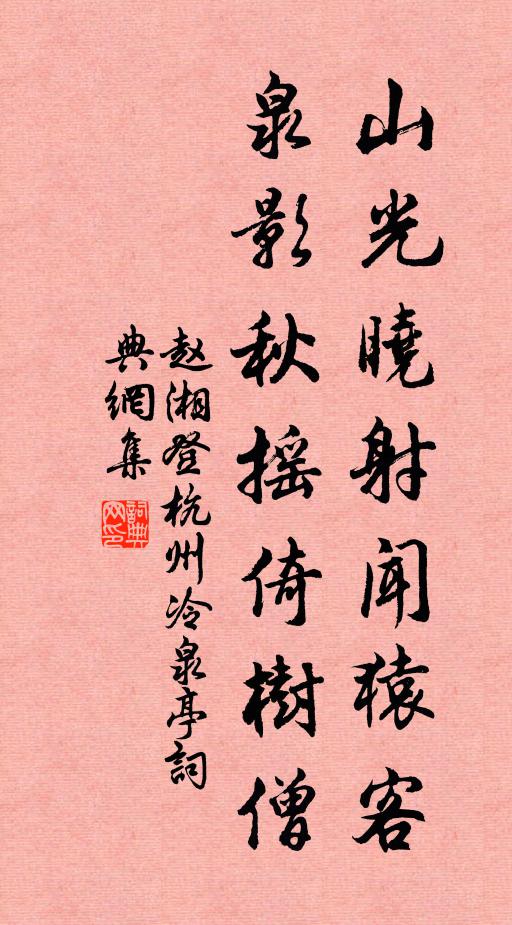 山光曉射聞猿客
泉影秋摇倚樹僧
赵湘登杭州冷泉亭詞
典網集
詞典
网印